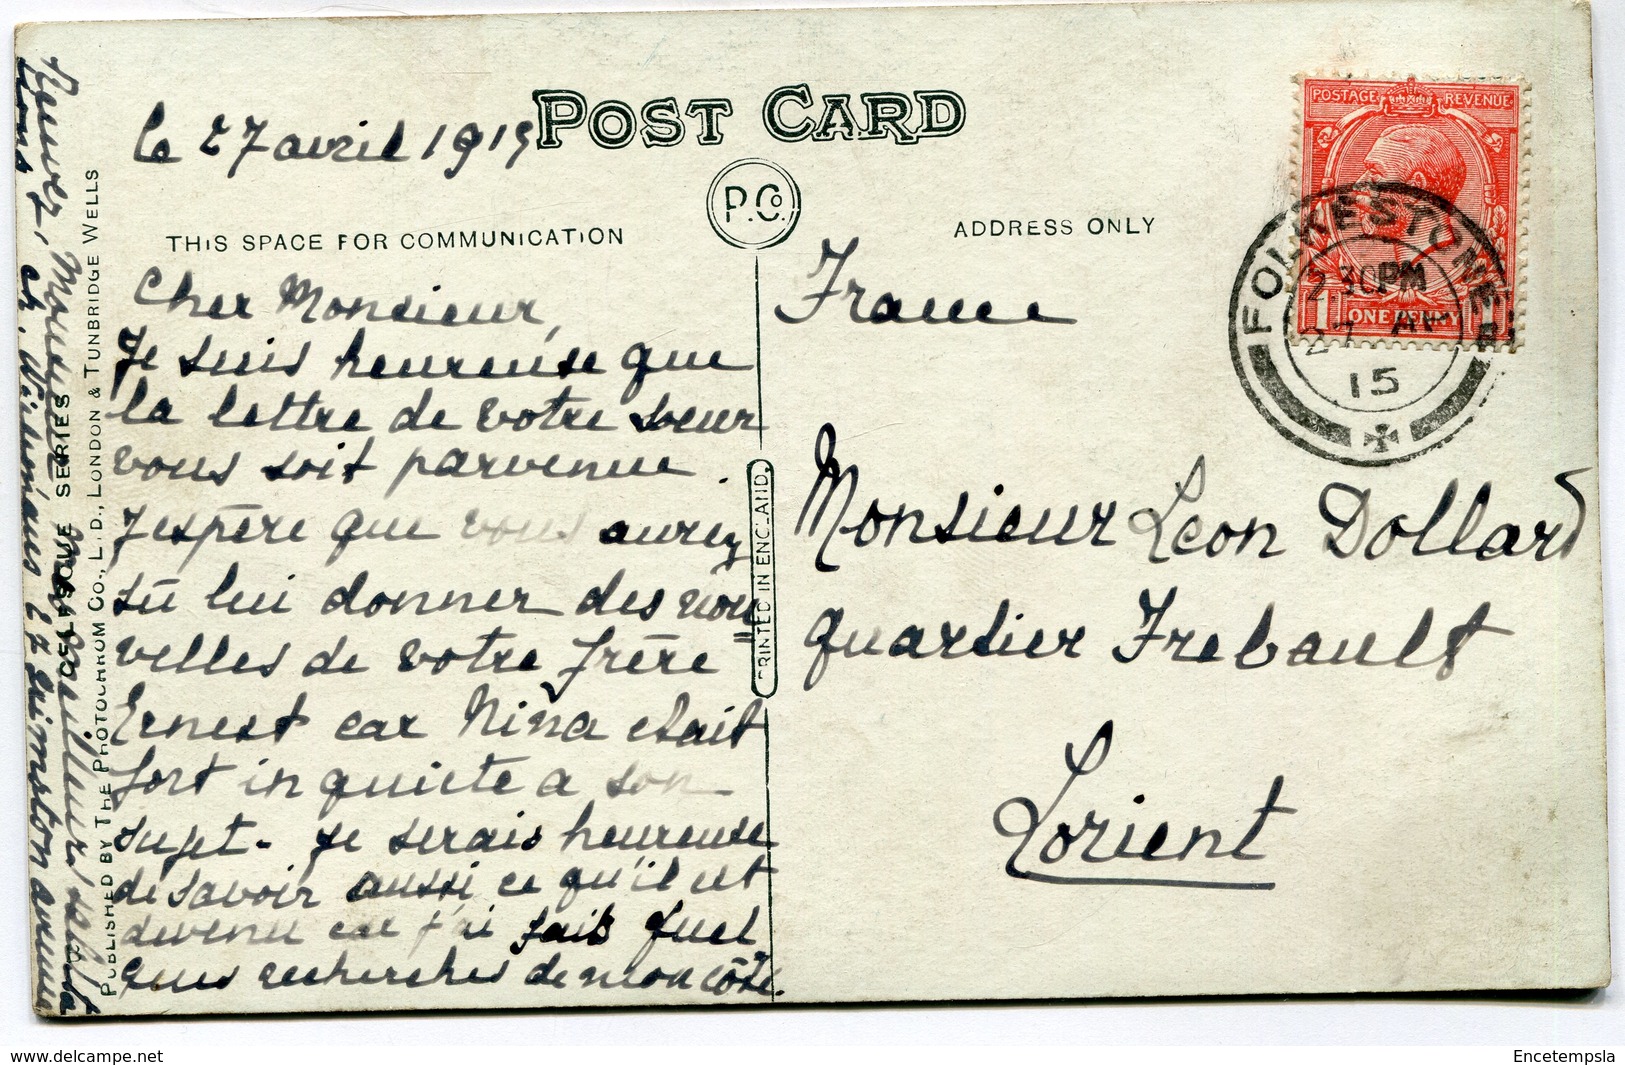 POST CARD
P.Co.
THIS SPACE FOR COMMUNICATION
ADDRESS ONLY
le 27 avril 1915
Cher Monsieur,
Je suis heureuse que
la lettre de votre soeur
vous soit parvenue.
J'espère que vous aurez
sû lui donner des nou=
velles de votre frère
Ernest car Nina etait
fort inquiete a son
sujet. Je serais heureuse
de savoir aussi ce qu'il est
devenu car j'ai fait quel
ques recherches de mon côté.
Recevez, Monsieur, mes meilleurs
Ch.
27 Grimston avenue
CELESQUE SERIES
PUBLISHED BY THE PHOTOCHROM CO., L.D., LONDON & TUNBRIDGE WELLS
PRINTED IN ENGLAND.
POSTAGE REVENUE
1 ONE PENNY 1
FOLKESTONE
2.30PM
27 AP
15
France
Monsieur Leon Dollard
quartier Frebault
Lorient
delcampe.net
Encetempsla